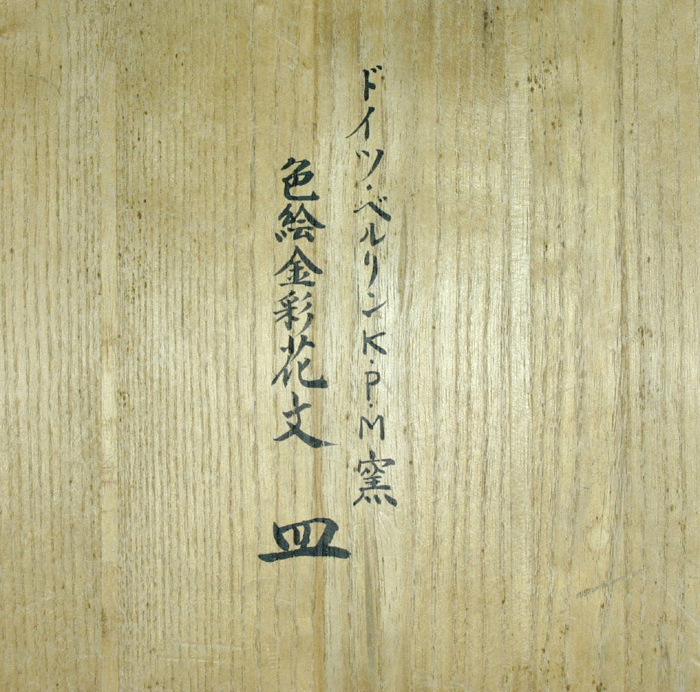 ドイツ・ベルリンK.P.M窯
色絵金彩花文 皿